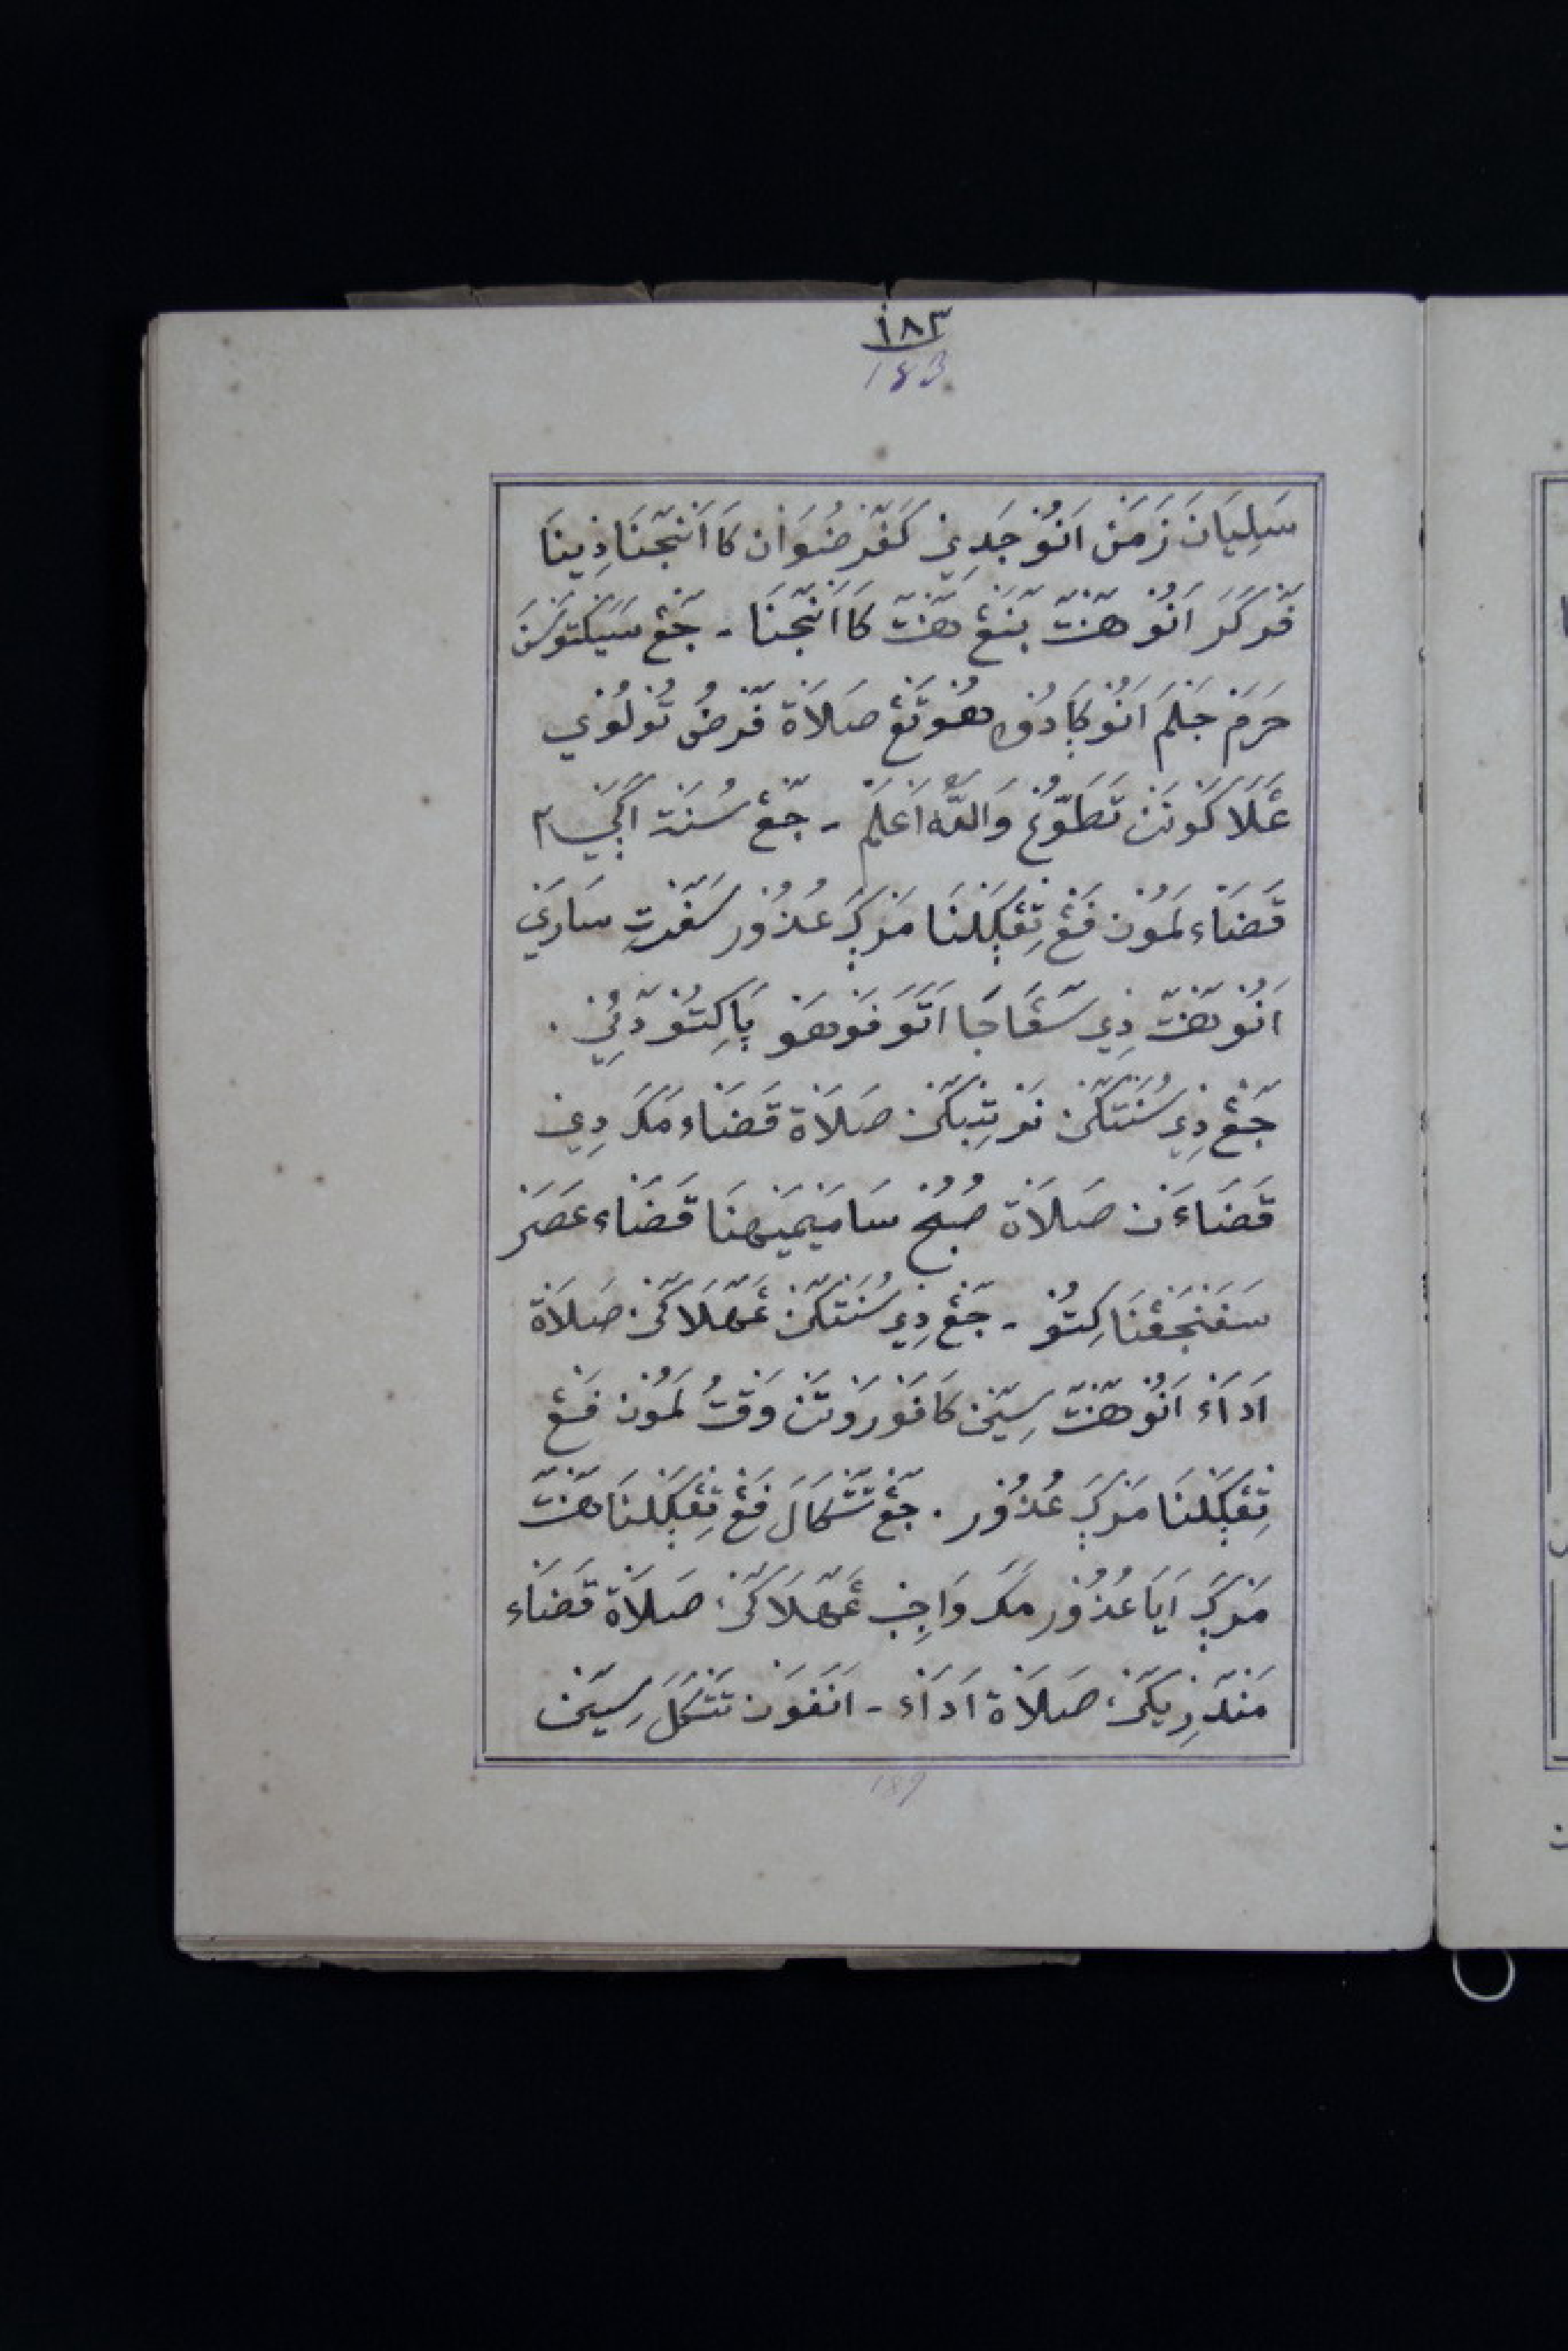 ١٨٣
183
سَلِيَانَ زَمَنْ اَنُوْ جَدِيْ كَفَرْضُوَانْ كَا اَنْجَنَا دِيْنَا
فَرْكَرَ اَنُوْ هَنْتَ بَنَغْ هَنْتَ كَا اَنْجَنَا - جَغْ سَيَكْتُوسَنَ
حَرَمْ جَلَمَ اَنُوْ بُوْغَا دُوِ هُوْتَغْ صَلَاةْ فَرْضُ تُوْلُوْيْ
عَلَاكُوْنَنْ تَطَوُّعْ وَاللّٰهُ اَعْلَمْ - جَغْ سُنَةْ اَكَيْ ٢
قَضَاءْ لَمُوْنْ فَغْ تِغْكَلْنَا مَرْكَ عُذُوْرْ سَفَرْتِ سَارَيْ
اَنُوْ هَنْتَ دِيْ سَغَاجَا اَتَوَ فَوْهَوْ بَاكِتُوْ دَيْيْ .
جَغْ دِيْ سُنَتْكَنْ تَرْتِبْكَنْ صَلَاةْ قَضَاءْ مَكَ دِيْ
قَضَاءَنْ صَلَاةْ صُبُحْ سَامَيْمَيْهَنَا قَضَاءْ عَصَرْ
سَفَنْجَغْنَا كِتُوْ - جَغْ دِيْ سُنَتْكَنْ عَهَلَاكَنْ صَلَاةْ
اَدَاءْ اَنُوْ هَنْتَ سِيَنْ كَافَوْرَوْتَنْ وَقْتُ لَمُوْنْ فَغْ
تِغْكَلْنَا مَرْكَ عُذُوْرْ . جَغْ تَتَكَالَ فَغْ تِغْكَلْنَا هَنْتَ
مَرْكَ اَيَا عُذُوْرْ مَكَ وَاجِبْ عَهَلَاكَنْ صَلَاةْ قَضَاءْ
مَنْدَرِيْكَنْ صَلَاةْ اَدَاءْ - اَنَفَوْنْ تَتَكَلَ سِيَنْ
189